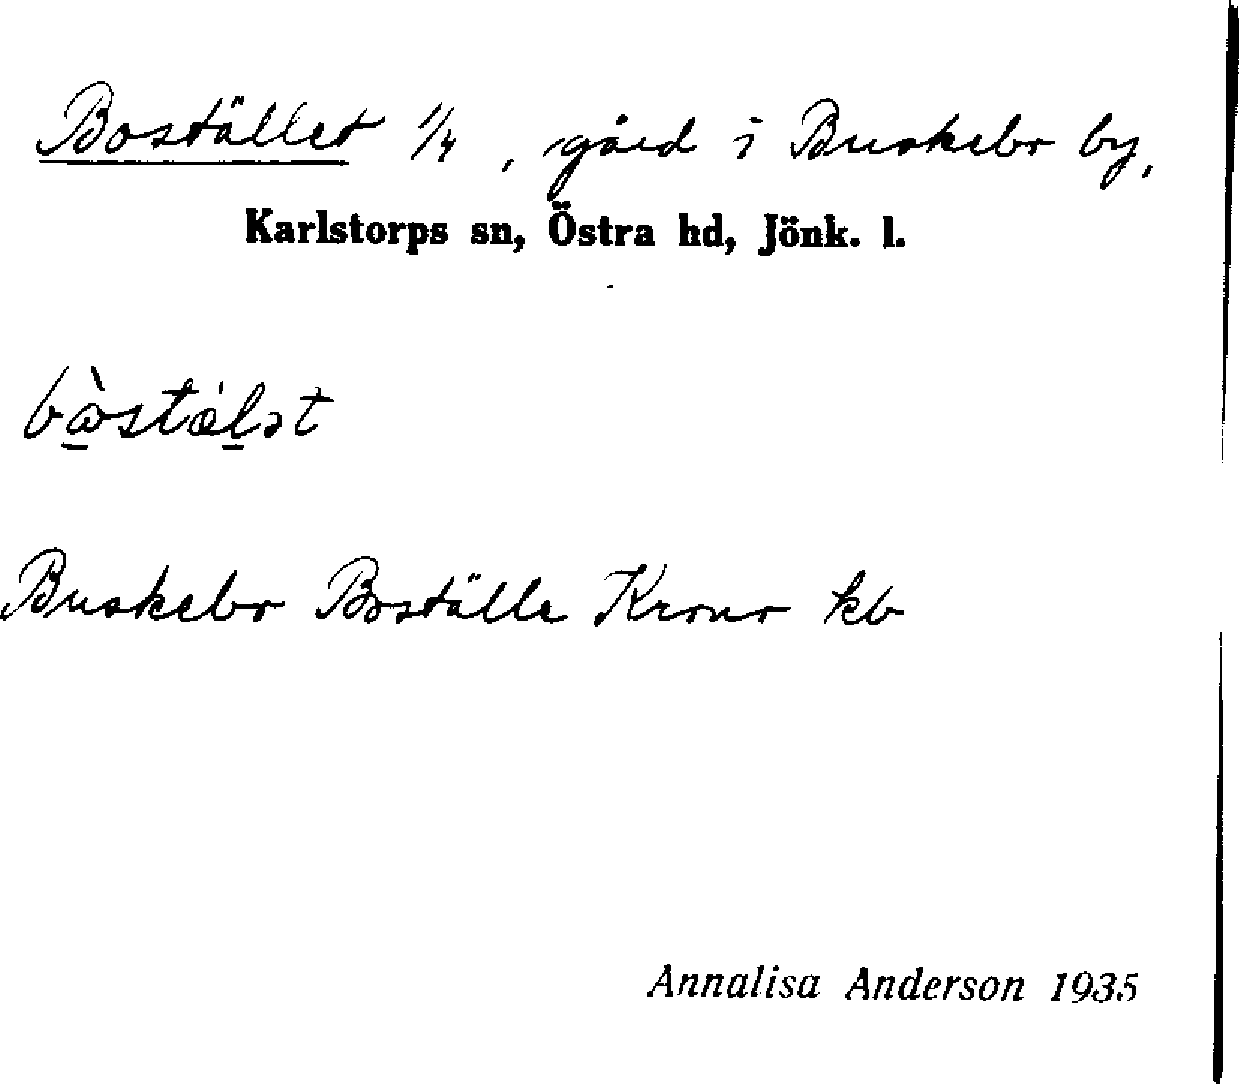 Bostället 1/4, gård i Buskebo by,
Karlstorps sn, Östra hd, Jönk. l.
Buskebo Boställe Krono kb
Annalisa Anderson 1935